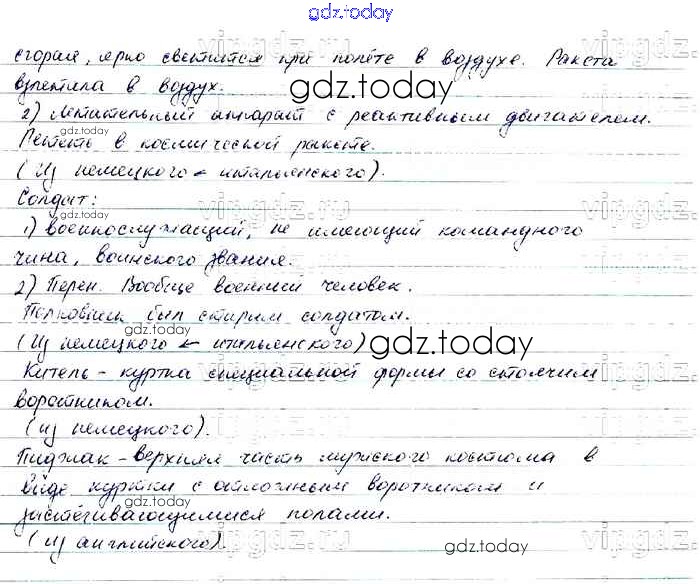 gdz.today
сгорая, ярко светится при полёте в воздухе. Ракета
взлетила в воздух.
gdz.today
2) Летательный аппарат с реактивным двигателем.
gdz.today
Лететь в космической ракете.
(Из немецкого ← итальянского).
Солдат:
gdz.today
1) военнослужащий, не имеющий командного
чина, воинского звания.
2) Перен. Вообще военный человек.
Полковник был старым солдатом.
(Из немецкого ← итальянского)
gdz.today
Китель - куртка специальной формы со стоячим
воротником.
(из немецкого).
gdz.today
Пиджак - верхняя часть мужского костюма в
виде куртки с отложным воротником и
gdz.today
застёгивающимися полами.
(Из английского).
gdz.today
vipgdz.ru